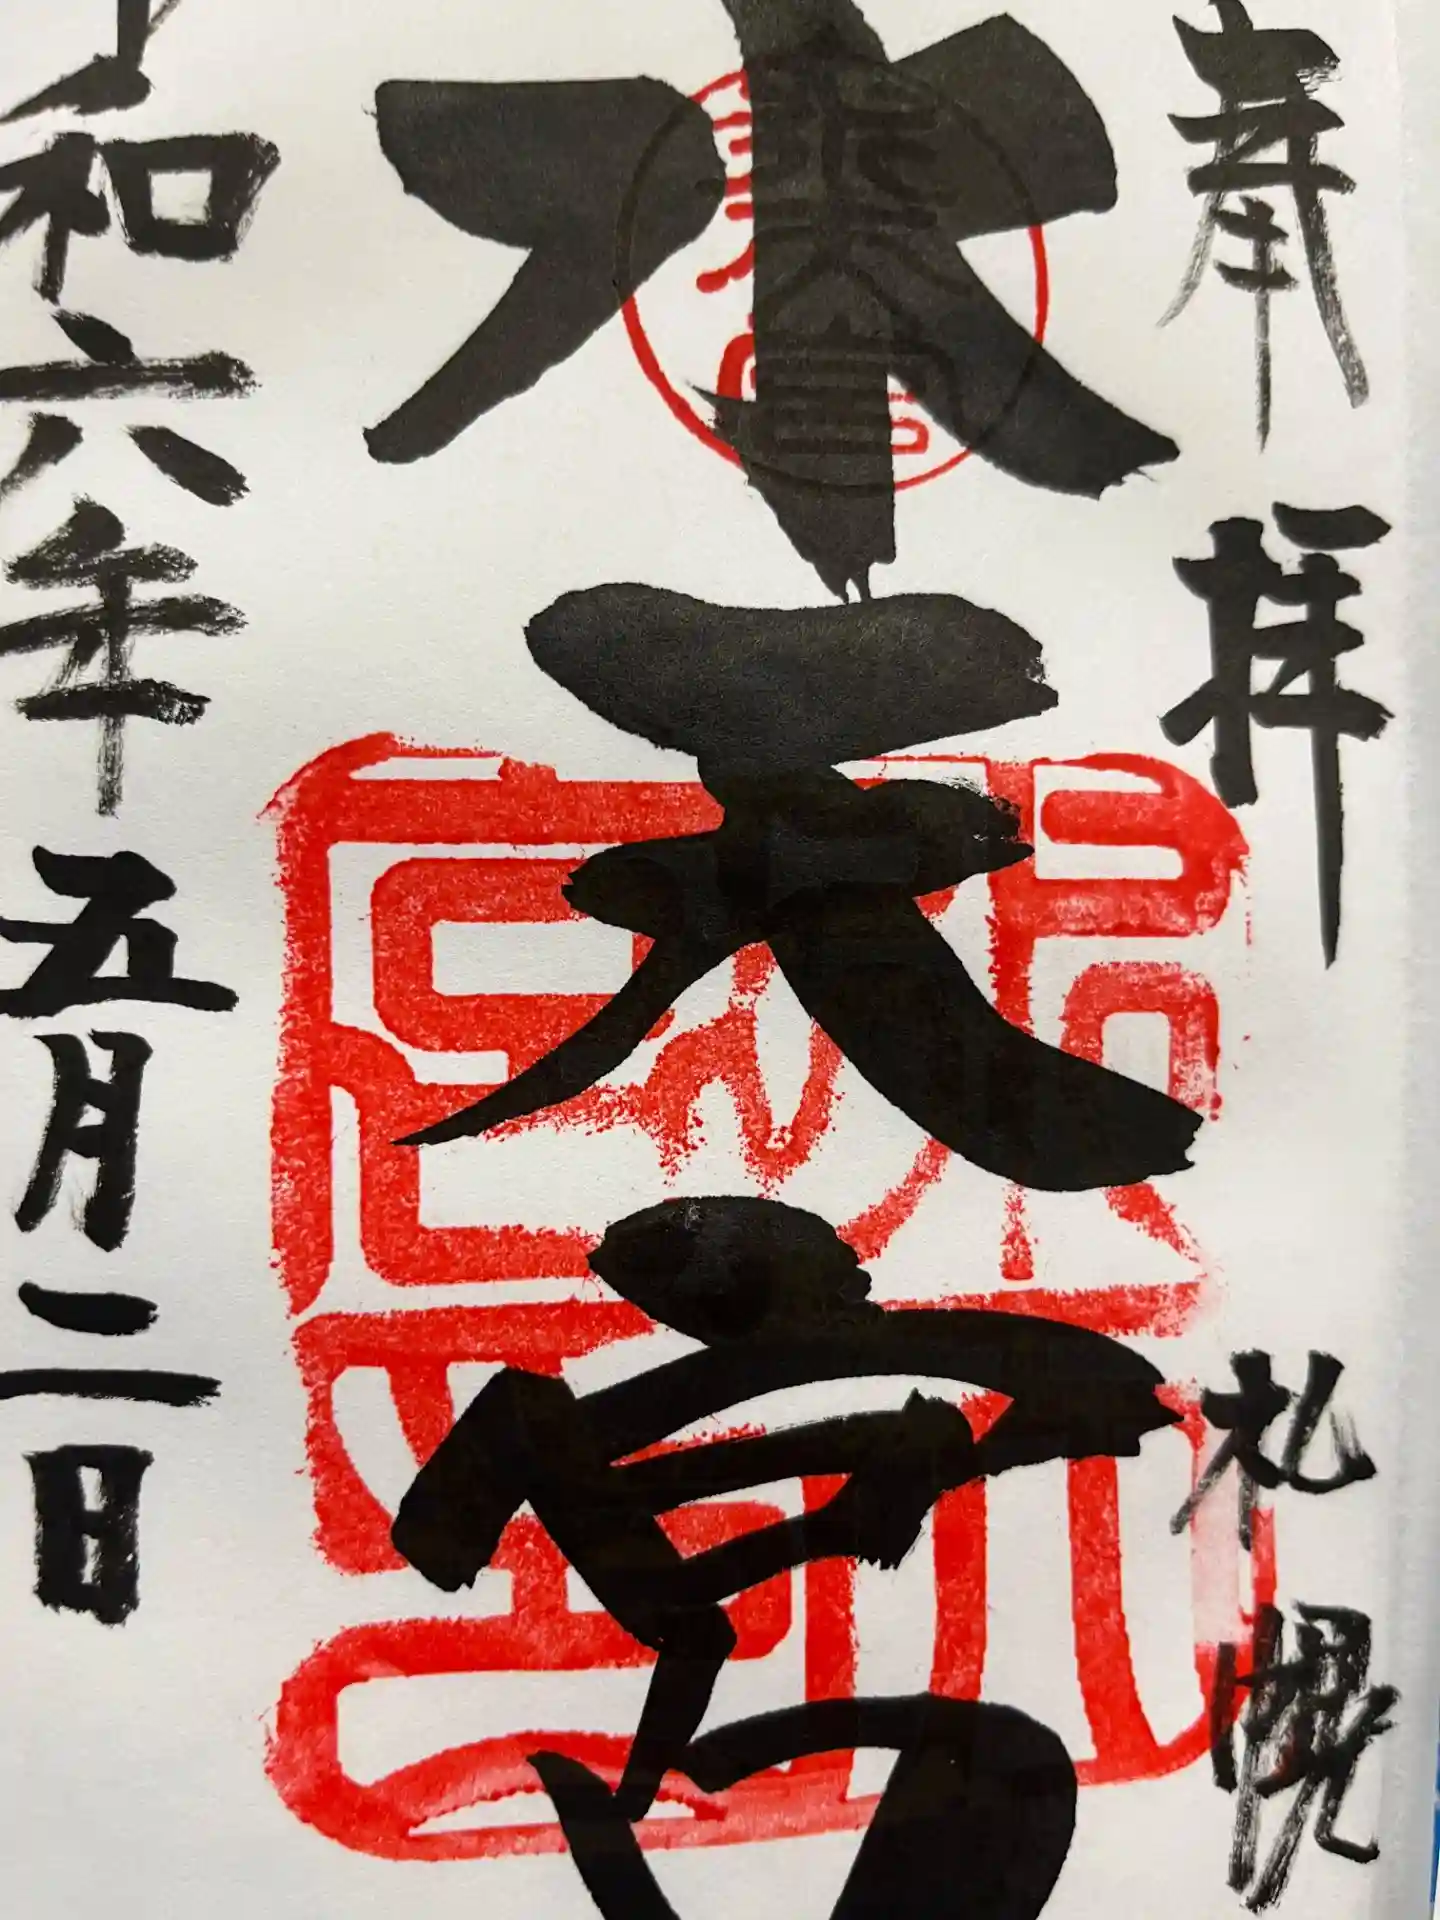 奉拝 札幌
水天宮
令和六年五月二日